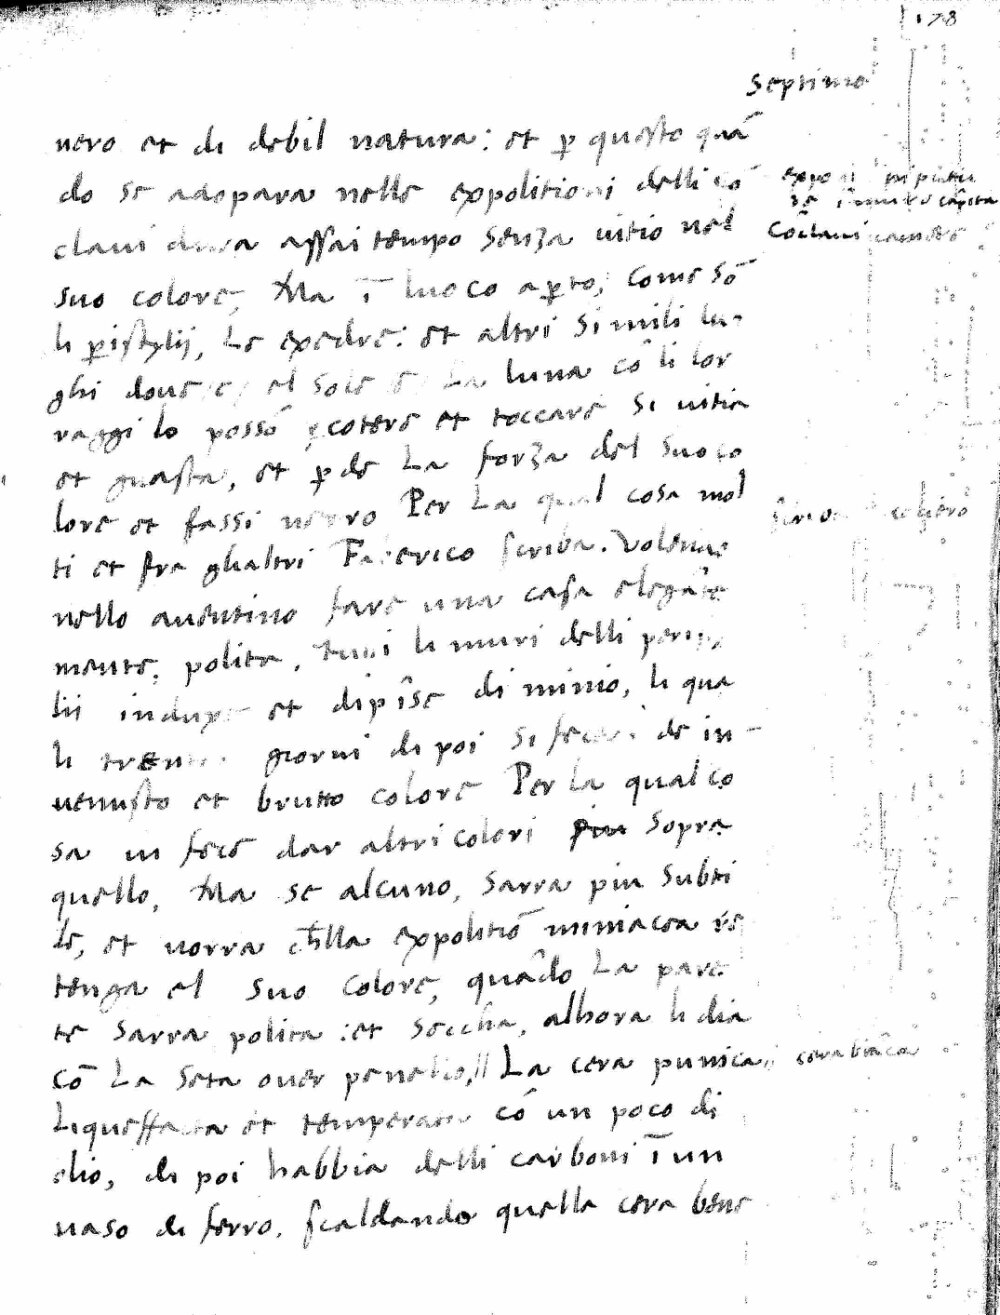 178
Septimo
nero et di debil natura: et p̲ questo quā
do se adopara nelle expolitioni delli cō
claui dura assai tempo senza uitio nel
suo colore, Ma ī luoco ap̲to, come sō
li p̲istylij, Le exedre: et altri simili lu-
ghi doue el sole La luna cō li lor
raggi lo possō p̲cotere et toccare si uitia
et guasta, et p̲de La forza del suo co
lore et fassi nero Per La qual cosa mol
ti et fra ghaltri Faberico scriba. Volendo
nello auentino fare una casa elegāte
mente, polita, tutti li muri delli peristy
lii induxe et dipīse di minio, li qua
li trenta giorni di poi si fecero de in-
uenusto et brutto colore Per la qual co
sa in fece dar altri colori piu sopra
quello, Ma se alcuno, sarra piu subti
le, et uorra expolitiō miniacea re
tenga el suo colore, quādo La pare
te sarra polita: et seccha, alhora li dia
cō La seta ouer penello, || La cera punica
Liqueffacta et temperata cō un poco di
olio, di poi habbia delli carboni ī un
uaso di ferro, scaldando quella cera bene
Cōclaui camere
cera biāca